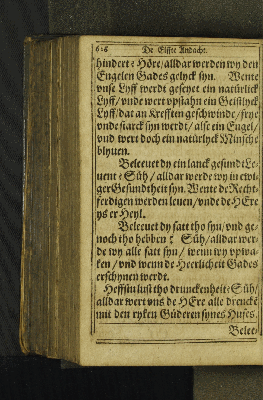 De Elffte Andacht.
hindert? Höre/ alldar werden wy den
Engelen Gades gelyck syn. Wente
vnse Lyff werdt geseyet ein natürlick
Lyff/ vnde wert vpstahn ein Geistlyck
Lyff/ dat an Krefften geschwinde/ frye
vnde starck syn werdt/ alse ein Engel/
vnd wert doch ein natürlyck Minsche
blyuen.
Beleeuet dy ein lanck gesundt Le-
uent? Süh/ alldar werde wy in ewi-
ger Gesundtheit syn. Wente de Recht-
ferdigen werden leuen/ vnde de HEre
ys er Heyl.
Beleeuet dy satt tho syn/ vnd ge-
noch tho hebben? Süh/ alldar wer-
de wy alle satt syn/ wenn wy vpwa-
ken/ vnd wenn de Heerlicheit Gades
erschynen werdt.
Heffstu lust tho drunckenheit? Süh/
alldar wert vns de HEre alle drencke
mit den ryken Güderen synes Huses.
Belee-